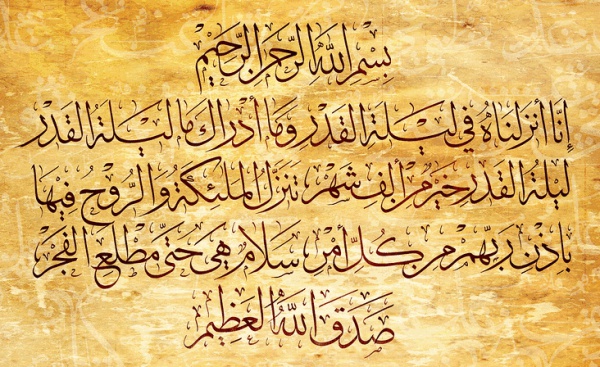 بِسْمِ اللهِ الرَّحْمَنِ الرَّحِيْمِ
إِنَّا أَنْزَلْنَاهُ فِي لَيْلَةِ القَدْرِ وَمَا أَدْرَاكَ مَا لَيْلَةُ القَدْرِ
لَيْلَةُ القَدْرِ خَيْرٌ مِنْ أَلْفِ شَهْرٍ تَنَزَّلُ المَلَئِكَةُ وَالرُّوْحُ فِيْهَا
بِإِذْنِ رَبِّهِمْ مِنْ كُلِّ أَمْرٍ سَلَامٌ هِيَ حَتَّى مَطْلَعِ الفَجْرِ
صَدَقَ اللهُ العَظِيْمِ